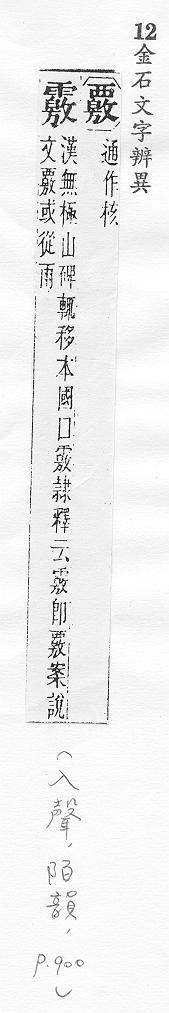 12金石文字辨異
覈 通作核
漢無極山碑輒移本國口隸釋云即覈案說
文覈或從雨
(入聲，陌韻，p.900)